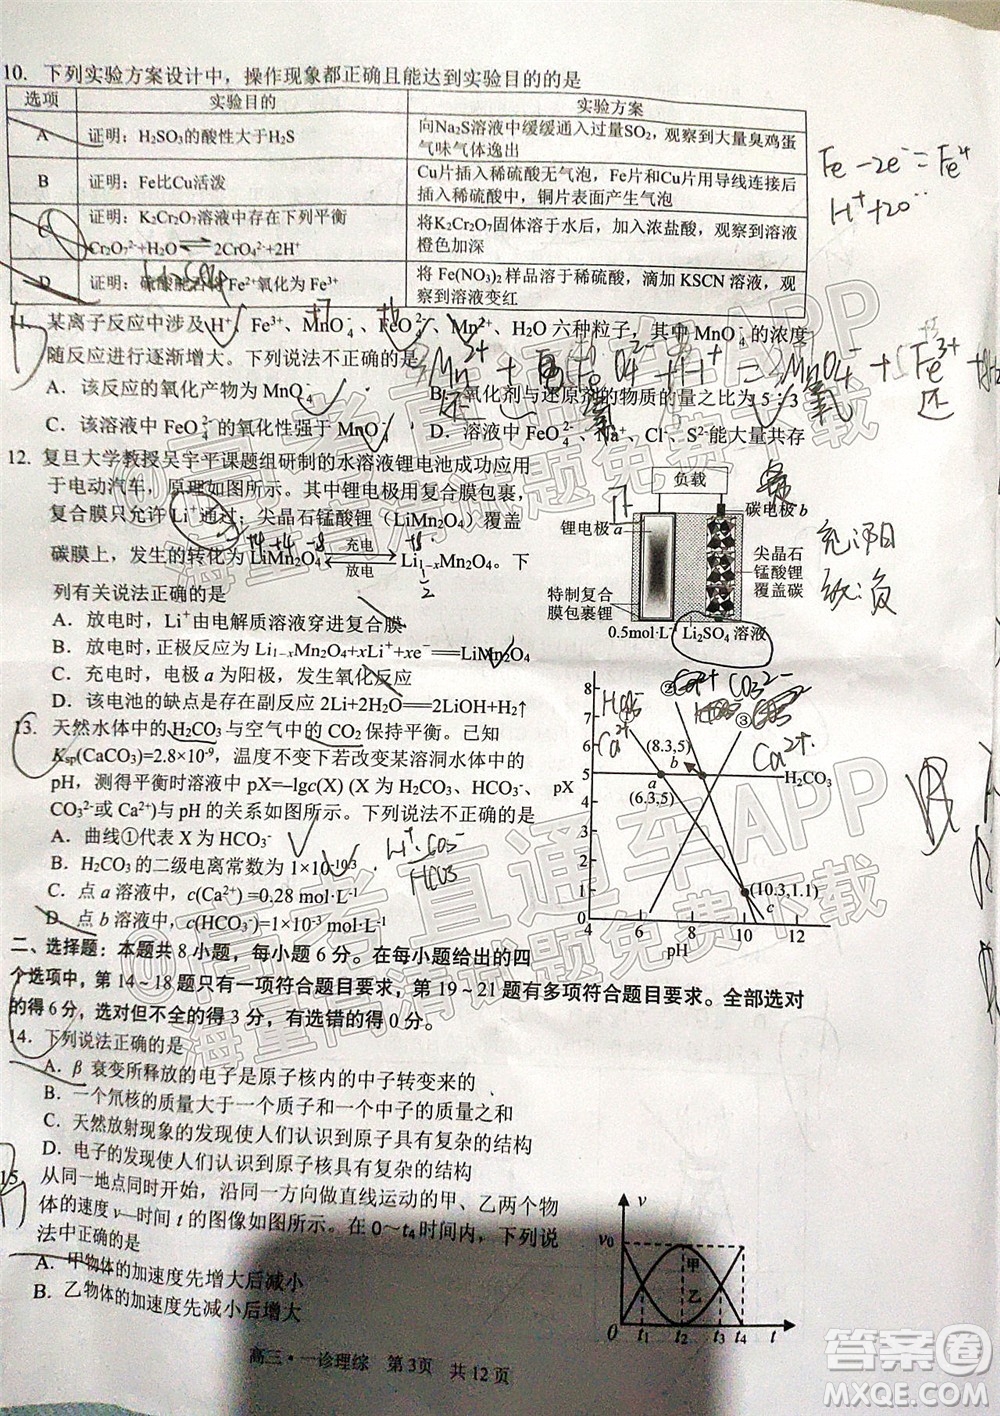 10. 下列实验方案设计中，操作现象都正确且能达到实验目的的是
选项 实验目的 实验方案
A 证明：H₂SO₃的酸性大于H₂S 向Na₂S溶液中缓缓通入过量SO₂，观察到大量臭鸡蛋
气味气体逸出
B 证明：Fe比Cu活泼 Cu片插入稀硫酸无气泡，Fe片和Cu片用导线连接后
插入稀硫酸中，铜片表面产生气泡
C 证明：K₂Cr₂O₇溶液中存在下列平衡
Cr₂O₇²⁻+H₂O⇌2CrO₄²⁻+2H⁺ 将K₂Cr₂O₇固体溶于水后，加入浓盐酸，观察到溶液
橙色加深
D 证明：硫酸能 Fe²⁺氧化为 Fe³⁺ 将 Fe(NO₃)₂ 样品溶于稀硫酸，滴加 KSCN 溶液，观
察到溶液变红
Fe-2e⁻=Fe
H⁺+20
11. 某离子反应中涉及H⁺、Fe³⁺、MnO₄⁻、FeO₄²⁻、Mn²⁺、H₂O 六种粒子，其中 MnO₄⁻的浓度
随反应进行逐渐增大。下列说法不正确的是
A．该反应的氧化产物为 MnO₄⁻ B．氧化剂与还原剂的物质的量之比为 5∶3
C．该反应中 FeO₄²⁻的氧化性强于 MnO₄⁻ D．溶液中 FeO₄²⁻、Na⁺、Cl⁻、S²⁻能大量共存
12. 复旦大学教授吴宇平课题组研制的水溶液锂电池成功应用
于电动汽车，原理如图所示。其中锂电极用复合膜包裹，
复合膜只允许 Li⁺通过；尖晶石锰酸锂（LiMn₂O₄）覆盖
碳膜上，发生的转化为 LiMn₂O₄ 充电 放电 Li₁₋ₓMn₂O₄。下
列有关说法正确的是
A．放电时，Li⁺由电解质溶液穿进复合膜
B．放电时，正极反应为 Li₁₋ₓMn₂O₄+xLi⁺+xe⁻══LiMn₂O₄
C．充电时，电极 a 为阳极，发生氧化反应
D．该电池的缺点是存在副反应 2Li+2H₂O══2LiOH+H₂↑
负载
锂电极a
碳电极 b
尖晶石
锰酸锂
覆盖碳
特制复合
膜包裹锂
0.5mol·L⁻¹ Li₂SO₄ 溶液
13. 天然水体中的H₂CO₃与空气中的 CO₂ 保持平衡。已知
Ksp(CaCO₃)=2.8×10⁻⁹，温度不变下若改变某溶洞水体中的
pH，测得平衡时溶液中 pX=–lgc(X) 其中 X: H₂CO₃、HCO₃⁻、
CO₃²⁻或 Ca²⁺与 pH 的关系如图所示。下列说法不正确的是
A．曲线①代表 X 为 HCO₃⁻
B．H₂CO₃ 的二级电离常数为 1×10⁻¹⁰·³
C．点 a 溶液中，c(Ca²⁺) =0.28 mol·L⁻¹
D．点 b 溶液中，c(HCO₃⁻)=1×10⁻³mol·L⁻¹
8
7
6
5
4
3
2
1
0
pX
① ② ③
(8.3,5)
b
a
(6.3,5)
H₂CO₃
(10.3,1.1)
c
4 6 8 10 12
pH
二、选择题：本题共 8 小题，每小题 6 分。在每小题给出的四
个选项中，第 14～18 题只有一项符合题目要求，第 19～21 题有多项符合题目要求。全部选对
的得 6 分，选对但不全的得 3 分，有选错的得 0 分。
14．下列说法正确的是
A．β 衰变所释放的电子是原子核内的中子转变来的
B．一个氘核的质量大于一个质子和一个中子的质量之和
C．天然放射现象的发现使人们认识到原子具有复杂的结构
D．电子的发现使人们认识到原子核具有复杂的结构
15. 从同一地点同时开始，沿同一方向做直线运动的甲、乙两个物
体的速度 v—时间 t 的图像如图所示。在 0～t₄ 时间内，下列说
法中正确的是
A．甲物体的加速度先增大后减小
B．乙物体的加速度先减小后增大
v
v₀
甲
乙
0 t₁ t₂ t₃ t₄ t
高三·一诊理综 第 3页 共 12 页
@高考直通车APP
海量高清试题免费下载
@高考直通车APP
海量高清试题免费下载
答案圈
MXQE.COM